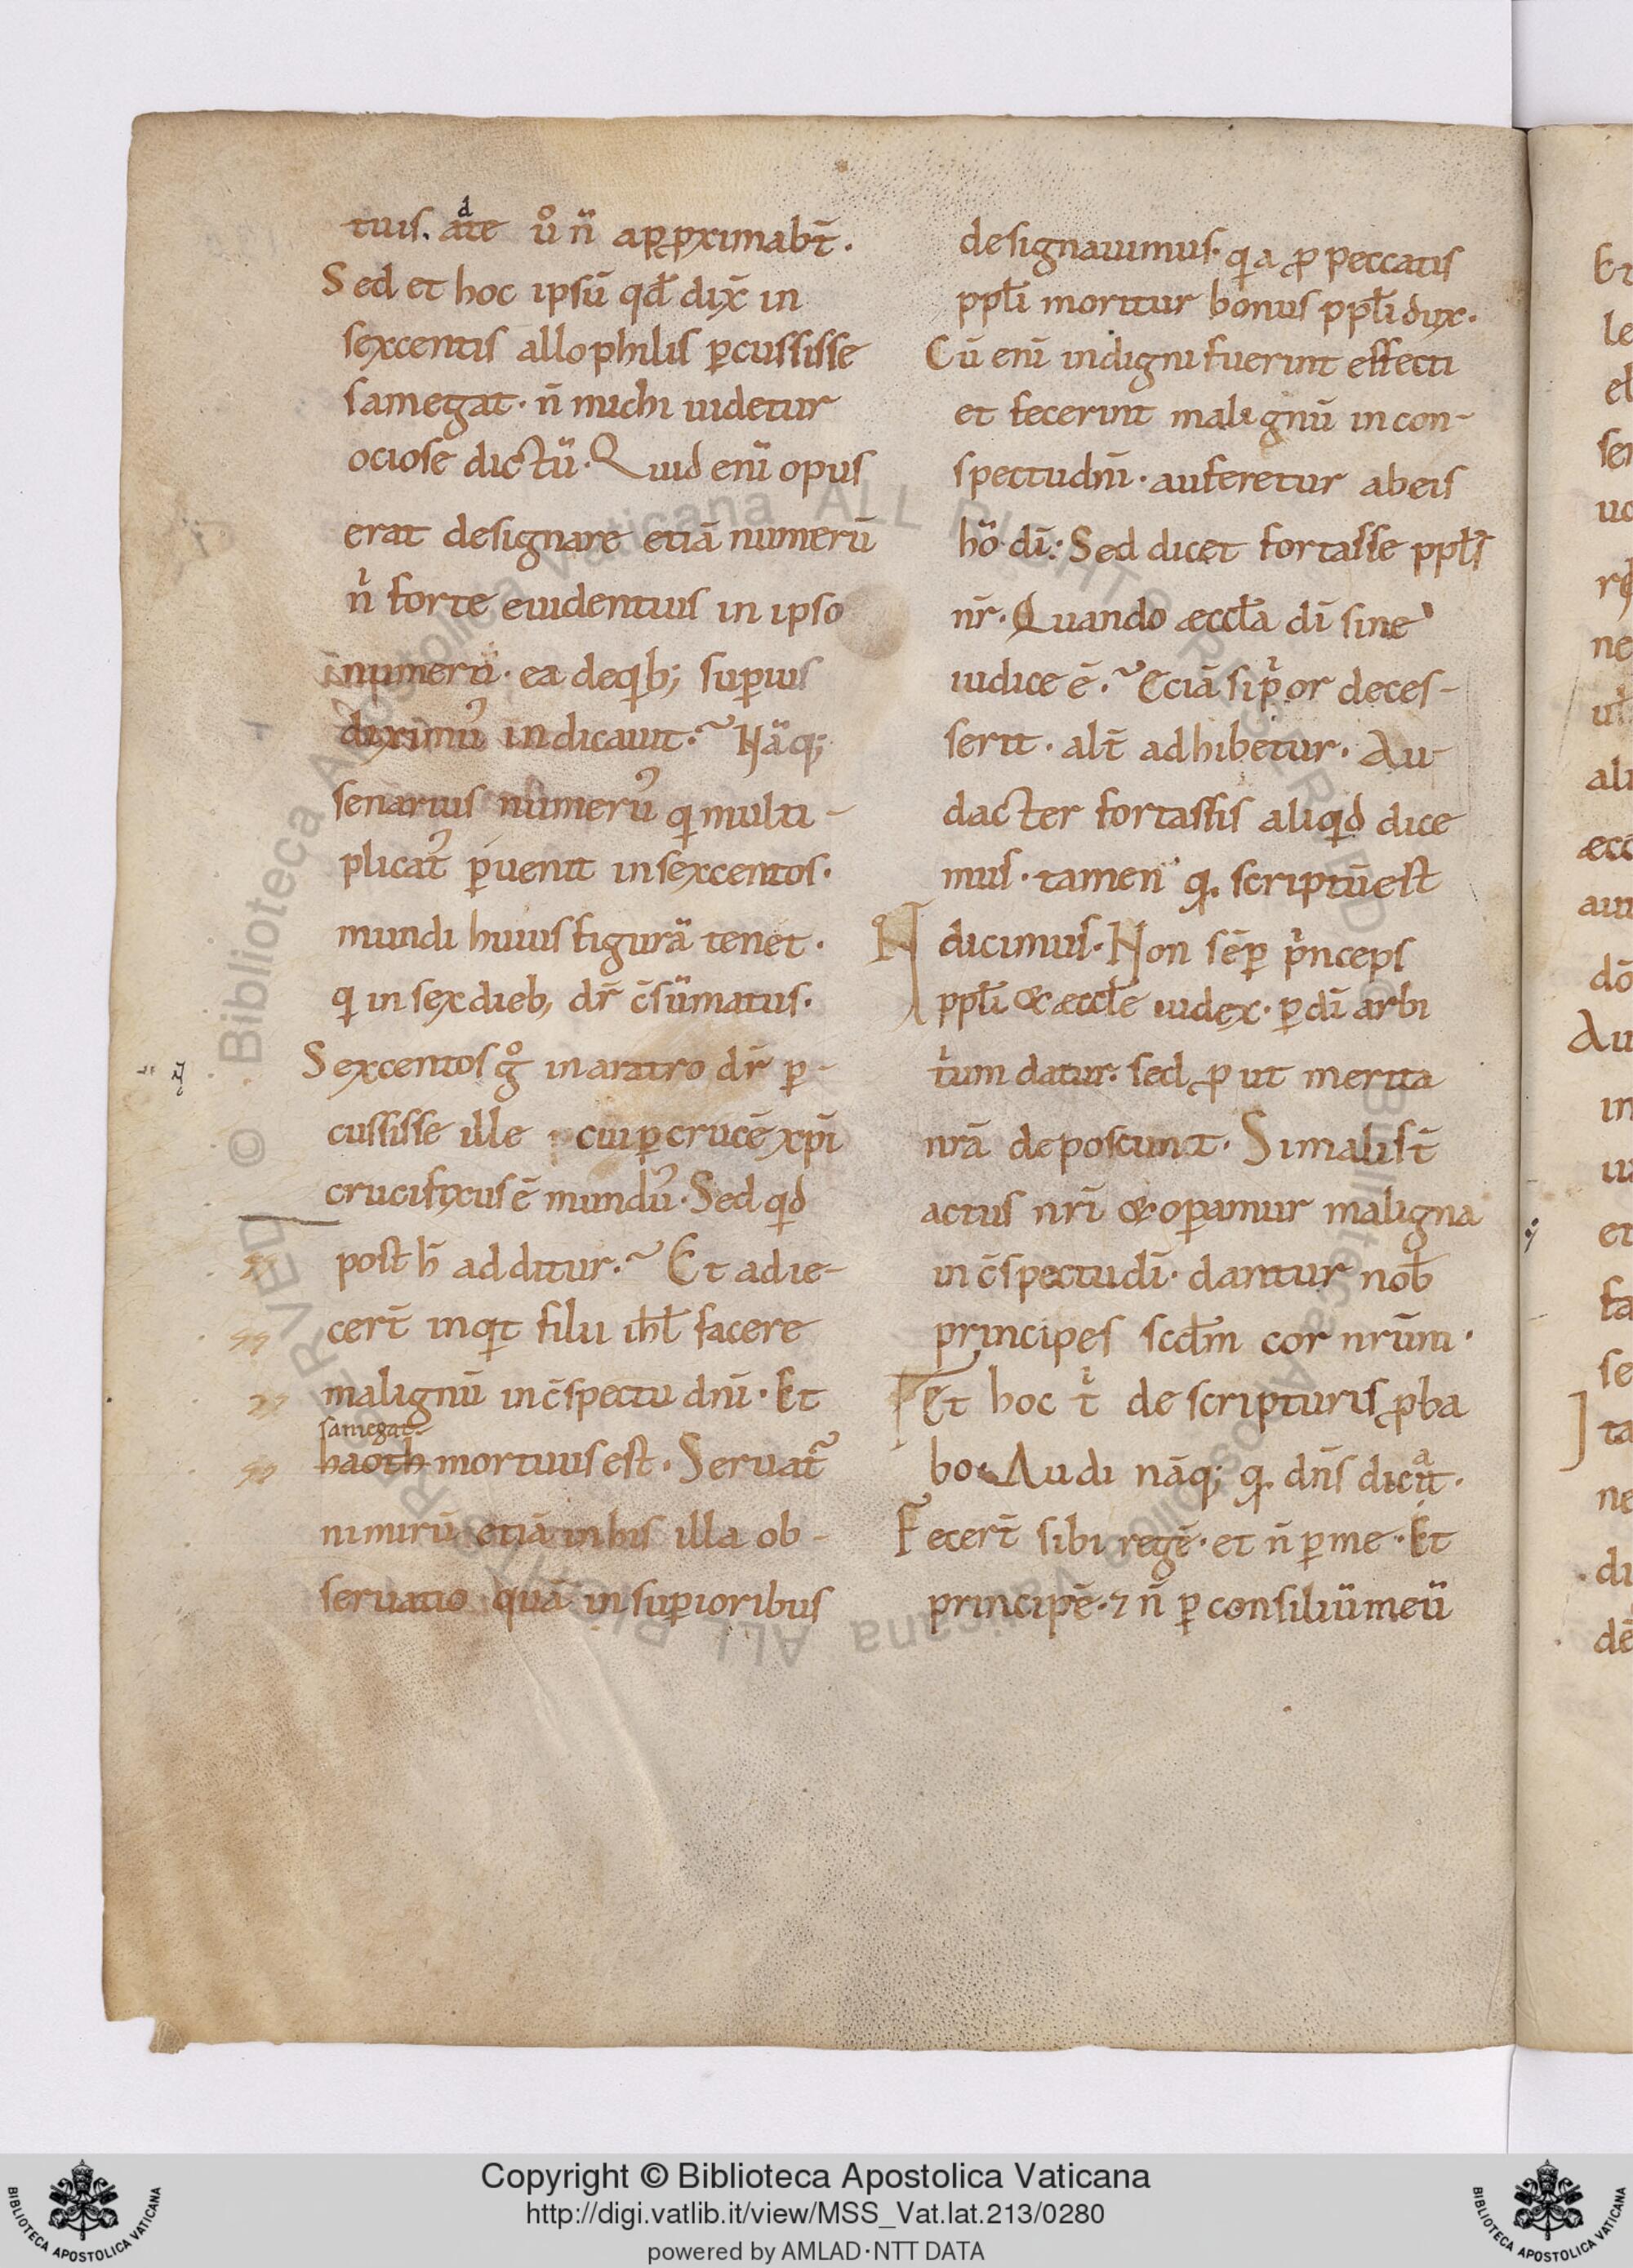 tuis. ate ů n̄ apꝓximabt̄.
d
Sed et hoc ipsū qđ dix̄ in
sexcentis allophilis ꝑcussisse
samegat· n̄ michi uidetur
ociose dictū· Quid enī opus
erat designare etiā numerū
n̍ forte euidentius in ipso
numero· ea deqꝫ b; suꝑius
diximuꝰ indicauit. Nāq;
senarius numeruꝰ qͥ multi-
plicat᷒ ꝑuenit in sexcentos·
mundi huius figurā tenet·
q in sex dieb; dr̄ c̄sūmatus·
Sexcentos gͦ in aratro dr̄ ꝑ-
cussisse ille cui ꝑ crucē xp̄i
crucifixus ē munduꝰ· Sed qd
post h̄ additur. Et adie-
cert̄ inqt filii isrł facere
malignū inc̄spectu dnī· Et
samegat
haoth mortuus est· Seruat᷒
nimirū etiā in his illa ob-
seruatio quā in suꝑioribus
designauimus· qa ꝓ peccatis
ppłi moritur bonus ppłi dux·
Cū enī indigni fuerint effecti
et fecerint malignū in con-
spectu dnī· auferetur ab eis
hō dī: Sed dicet fortasse ppłs
nr̄· Quando æccła dī sine
iudice ē. Eciā si pͥor deces-
serit· alt̄ adhibetur· Au-
dacter fortassis aliqd dice
mus· tamen q. scriptū est
dicimus· Non sēꝑ pͥnceps
ppłi & æccłe iudex· ꝑ dī arbi
tͥum datur· sed ꝓut merita
nrā deposcunt· Si mali st̄
actus nrī & oꝑamur maligna
in c̄spectu dī· dantur nob̄
principes scđm cor nrūm·
Et hoc tͥ de scripturis ꝓba
bo· Audi nāq; q. dn̄s dicit·
a
Fecert̄ sibi regē· et n̄ ꝑ me· Et
principē· ⁊ n̄ ꝑ consiliū meū
Copyright © Biblioteca Apostolica Vaticana
http://digi.vatlib.it/view/MSS_Vat.lat.213/0280
powered by AMLAD·NTT DATA
BIBLIOTECA APOSTOLICA VATICANA
BIBLIOTECA APOSTOLICA VATICANA